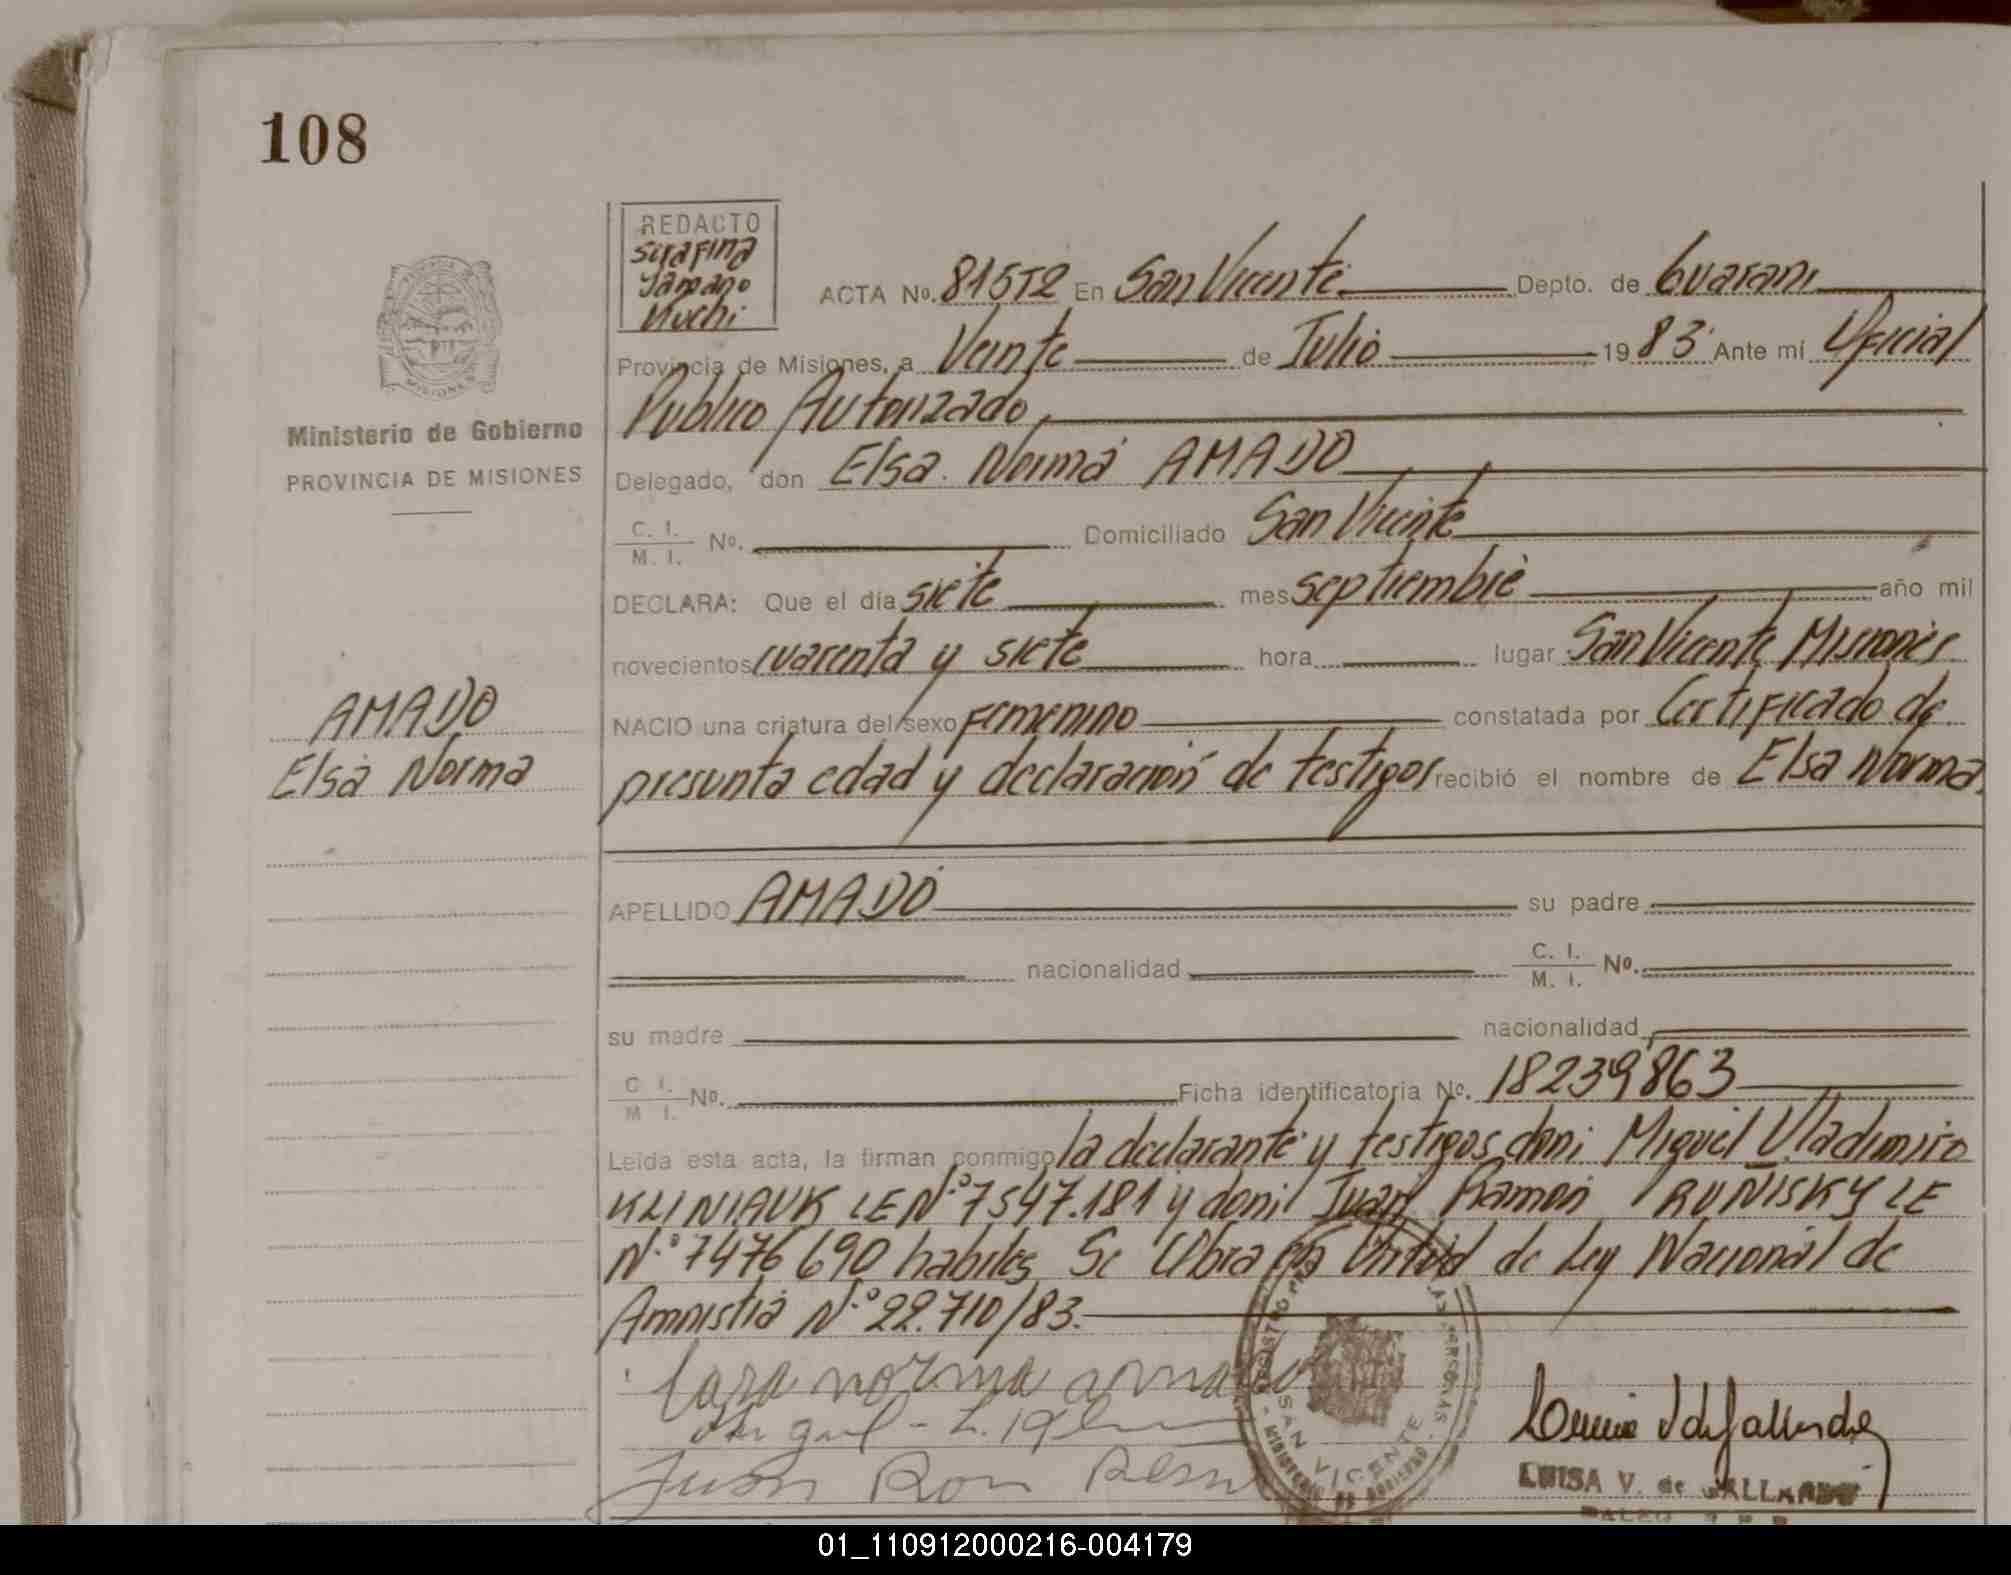 108
REDACTO
Serafina
Kuchi
ACTA No. 81572 En San Vicente Depto. de Guarani
Provincia de Misiones, a Veinte de Julio 1983 Ante mí Oficial
Publico Autorizado
Delegado, don Elsa Norma AMADO
C. I.
M. I. No. Domiciliado San Vicente
Ministerio de Gobierno
PROVINCIA DE MISIONES
DECLARA: Que el día siete mes septiembre año mil
novecientos cuarenta y siete hora lugar San Vicente Misiones
AMADO
Elsa Norma
NACIO una criatura del sexo femenino constatada por Certificado de
presunta edad y declaración de testigos recibió el nombre de Elsa Norma
APELLIDO AMADO su padre
nacionalidad C. I.
M. I. No.
su madre nacionalidad
C. I.
M. I. No. Ficha identificatoria No. 18239863
Leída esta acta, la firman conmigo la declarante y testigos don: Miguel Vladimiro
KLINIAUK LE N° 7547.181 y don: Juan Ramon RUNISKY LE
N° 7476690 habiles Se Ubra en Virtud de Ley Nacional de
Amnistia N° 22.710/83.
norma amado
Juan
SAN VICENTE
LUISA V. de GALLARDO
01_110912000216-004179